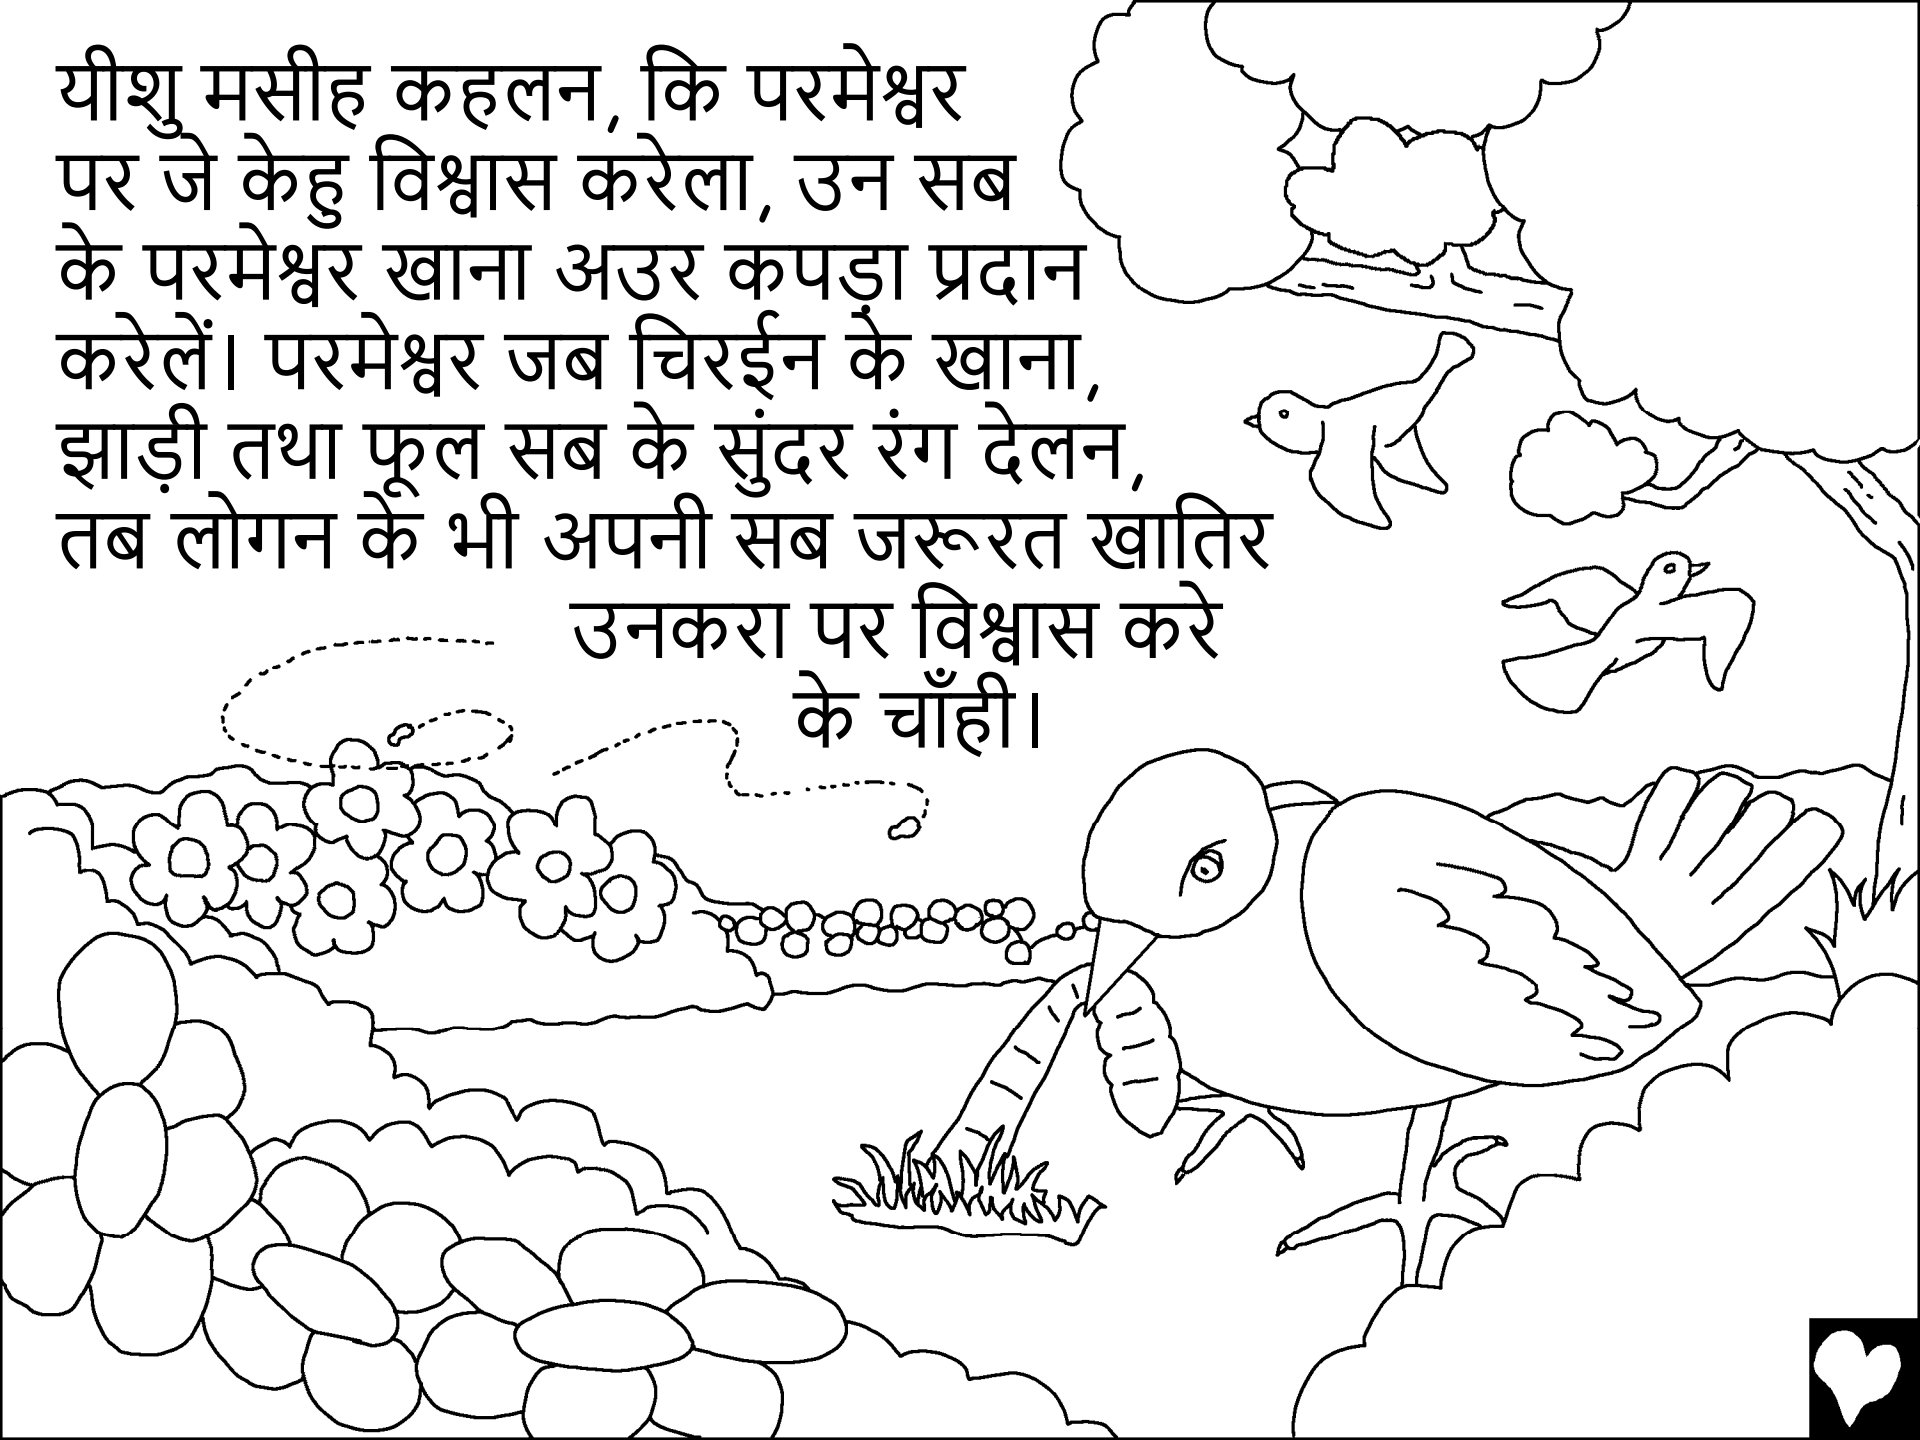 यीशु मसीह कहलन, कि परमेश्वर
पर जे केहु विश्वास करेला, उन सब
के परमेश्वर खाना अउर कपड़ा प्रदान
करेलें। परमेश्वर जब चिरईन के खाना,
झाड़ी तथा फूल सब के सुंदर रंग देलन,
तब लोगन के भी अपनी सब जरूरत खातिर
उनकरा पर विश्वास करे
के चाँही।